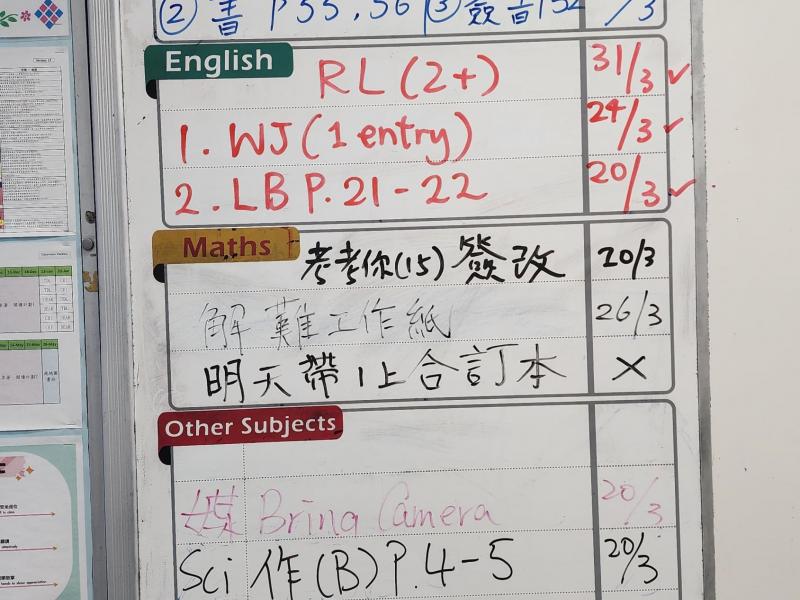 ② 書 P55,56 ③
/3
English
RL (2+) 31/3 ✓
1. WJ (1 entry) 24/3 ✓
2. LB P.21-22 20/3 ✓
Maths
考考你(15) 簽改 20/3
解難工作紙 26/3
明天帶1上合訂本 ×
Other Subjects
Bring Camera 20/3
Sci 作(B) P.4-5 20/3